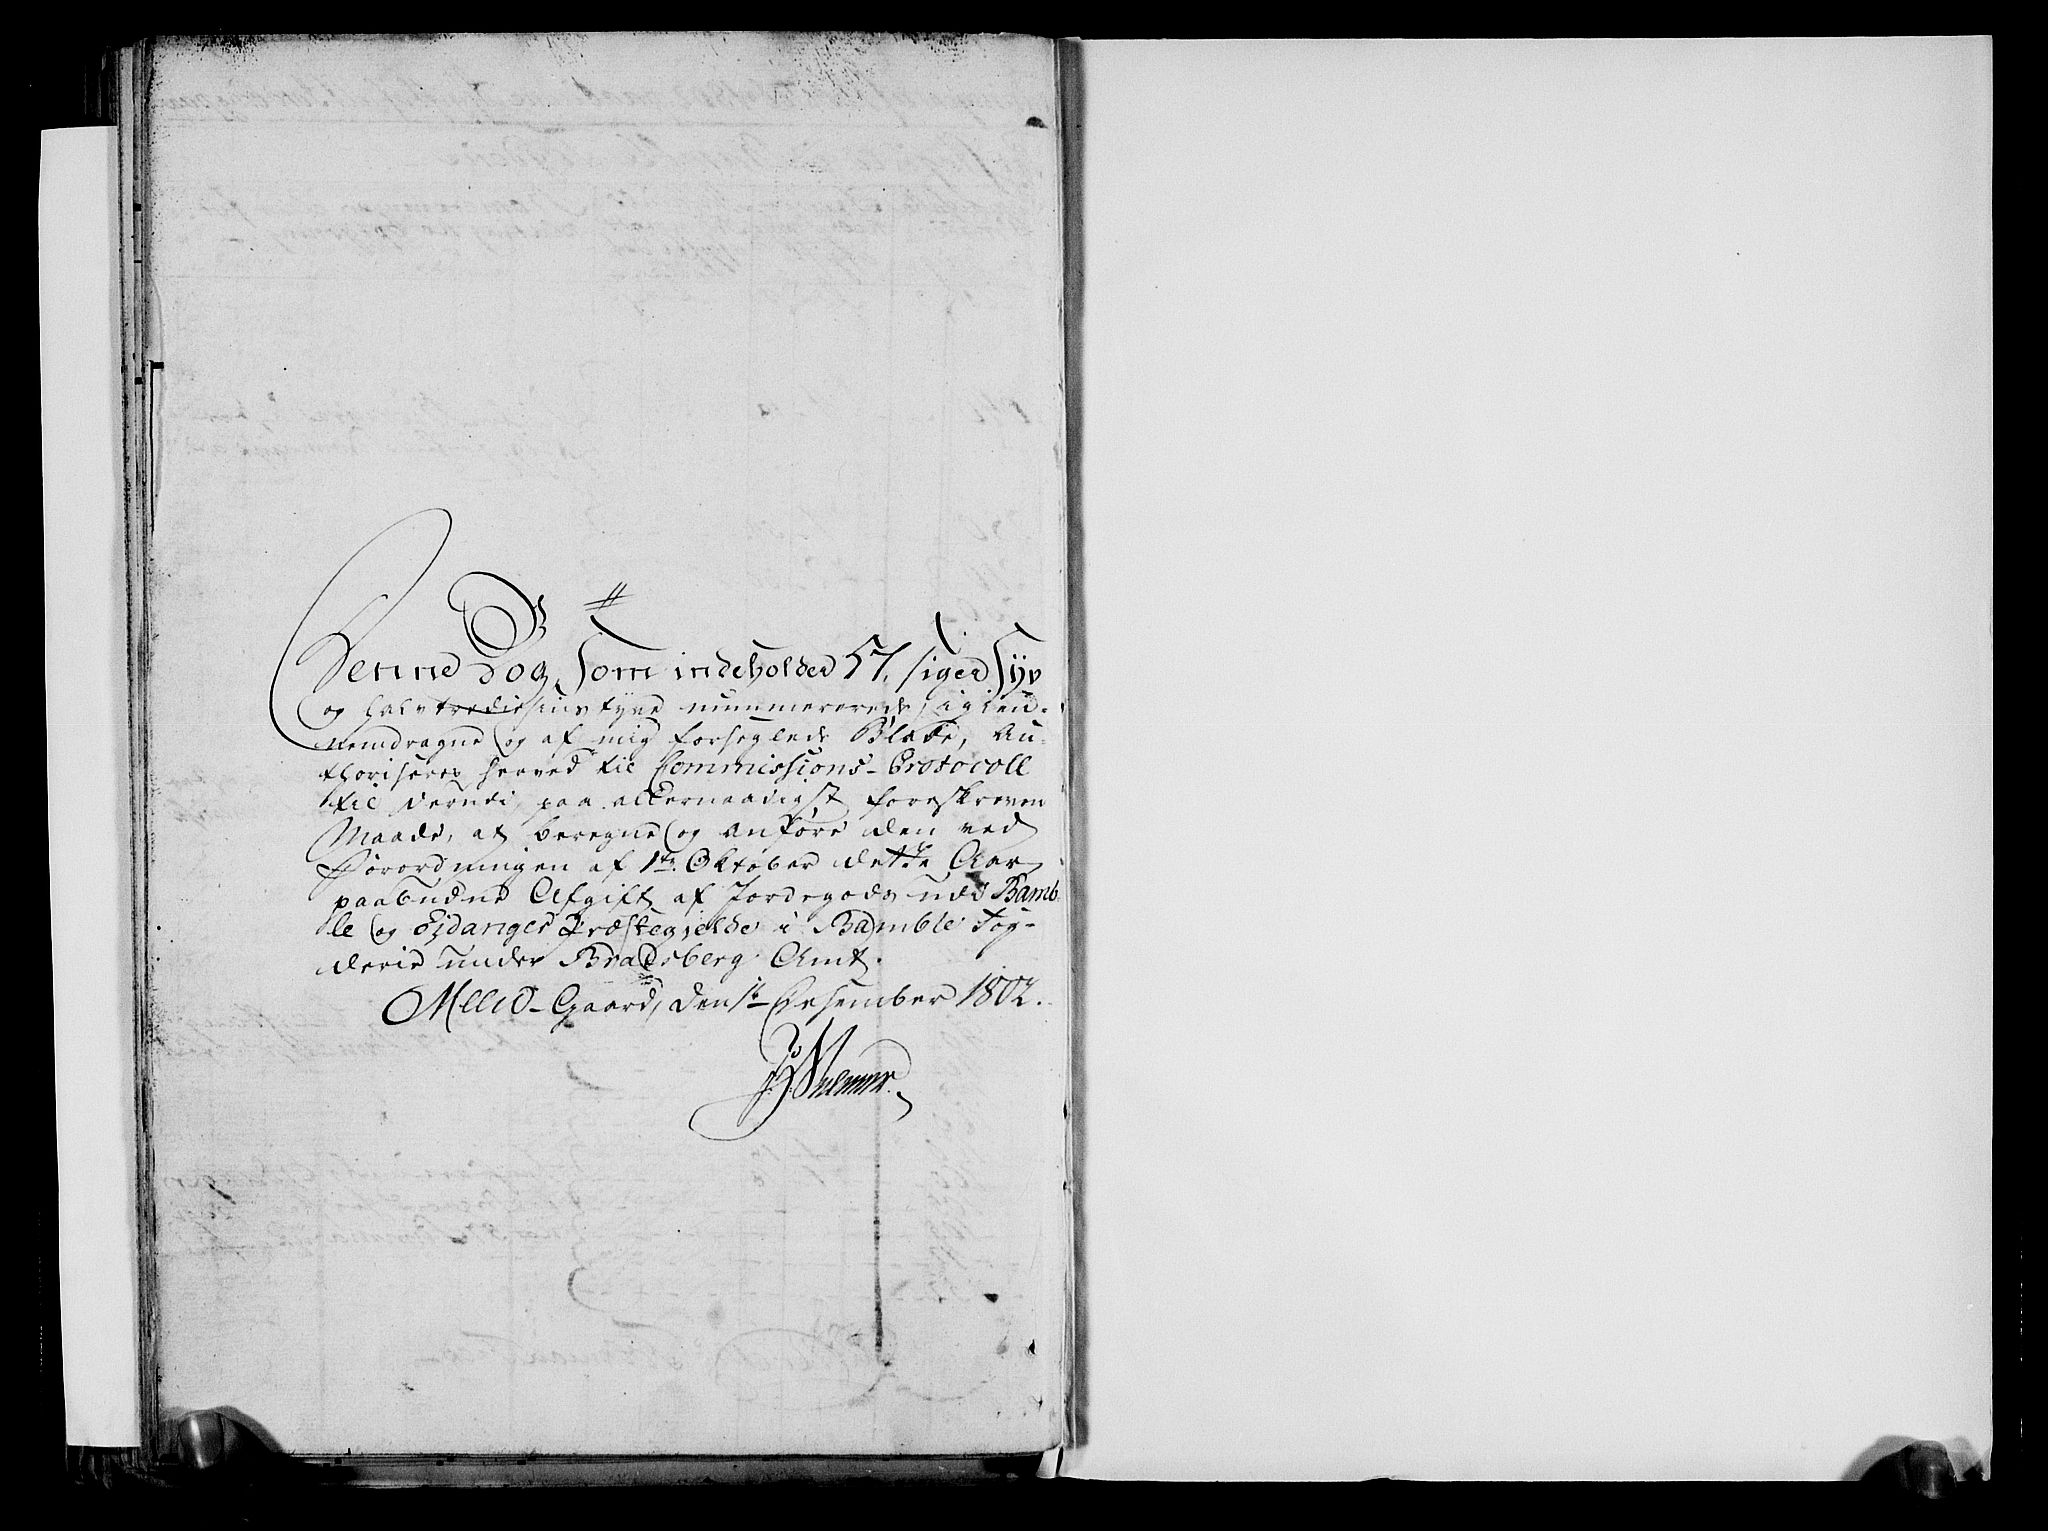 Denne Bog, som indeholder 57, siger Syv
og halvtrediesinstyve nummererede, igien-
nemdragne og af mig forseglede Blade, Au-
thoriseres herved til Commissions-Protocoll
til derudi, paa allernaadigst foreskreven
Maade, at beregne og anføre den ved
Forordningen af 1te Oktober dette Aar
paabudne Afgift af Jordegods udi Bamb-
le og Eidanger Præstegjelde i Bamble Fog-
derie under Bradsberg Amt.
Melid-Gaard, den 1te Desember 1802.